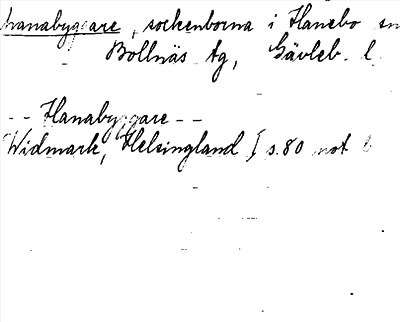 hanabyggare, sockenborna i Hanebo sn
Bollnäs tg, Gävleb. l.
-- Hanabyggare --
Widmark, Helsingland I s. 80 not